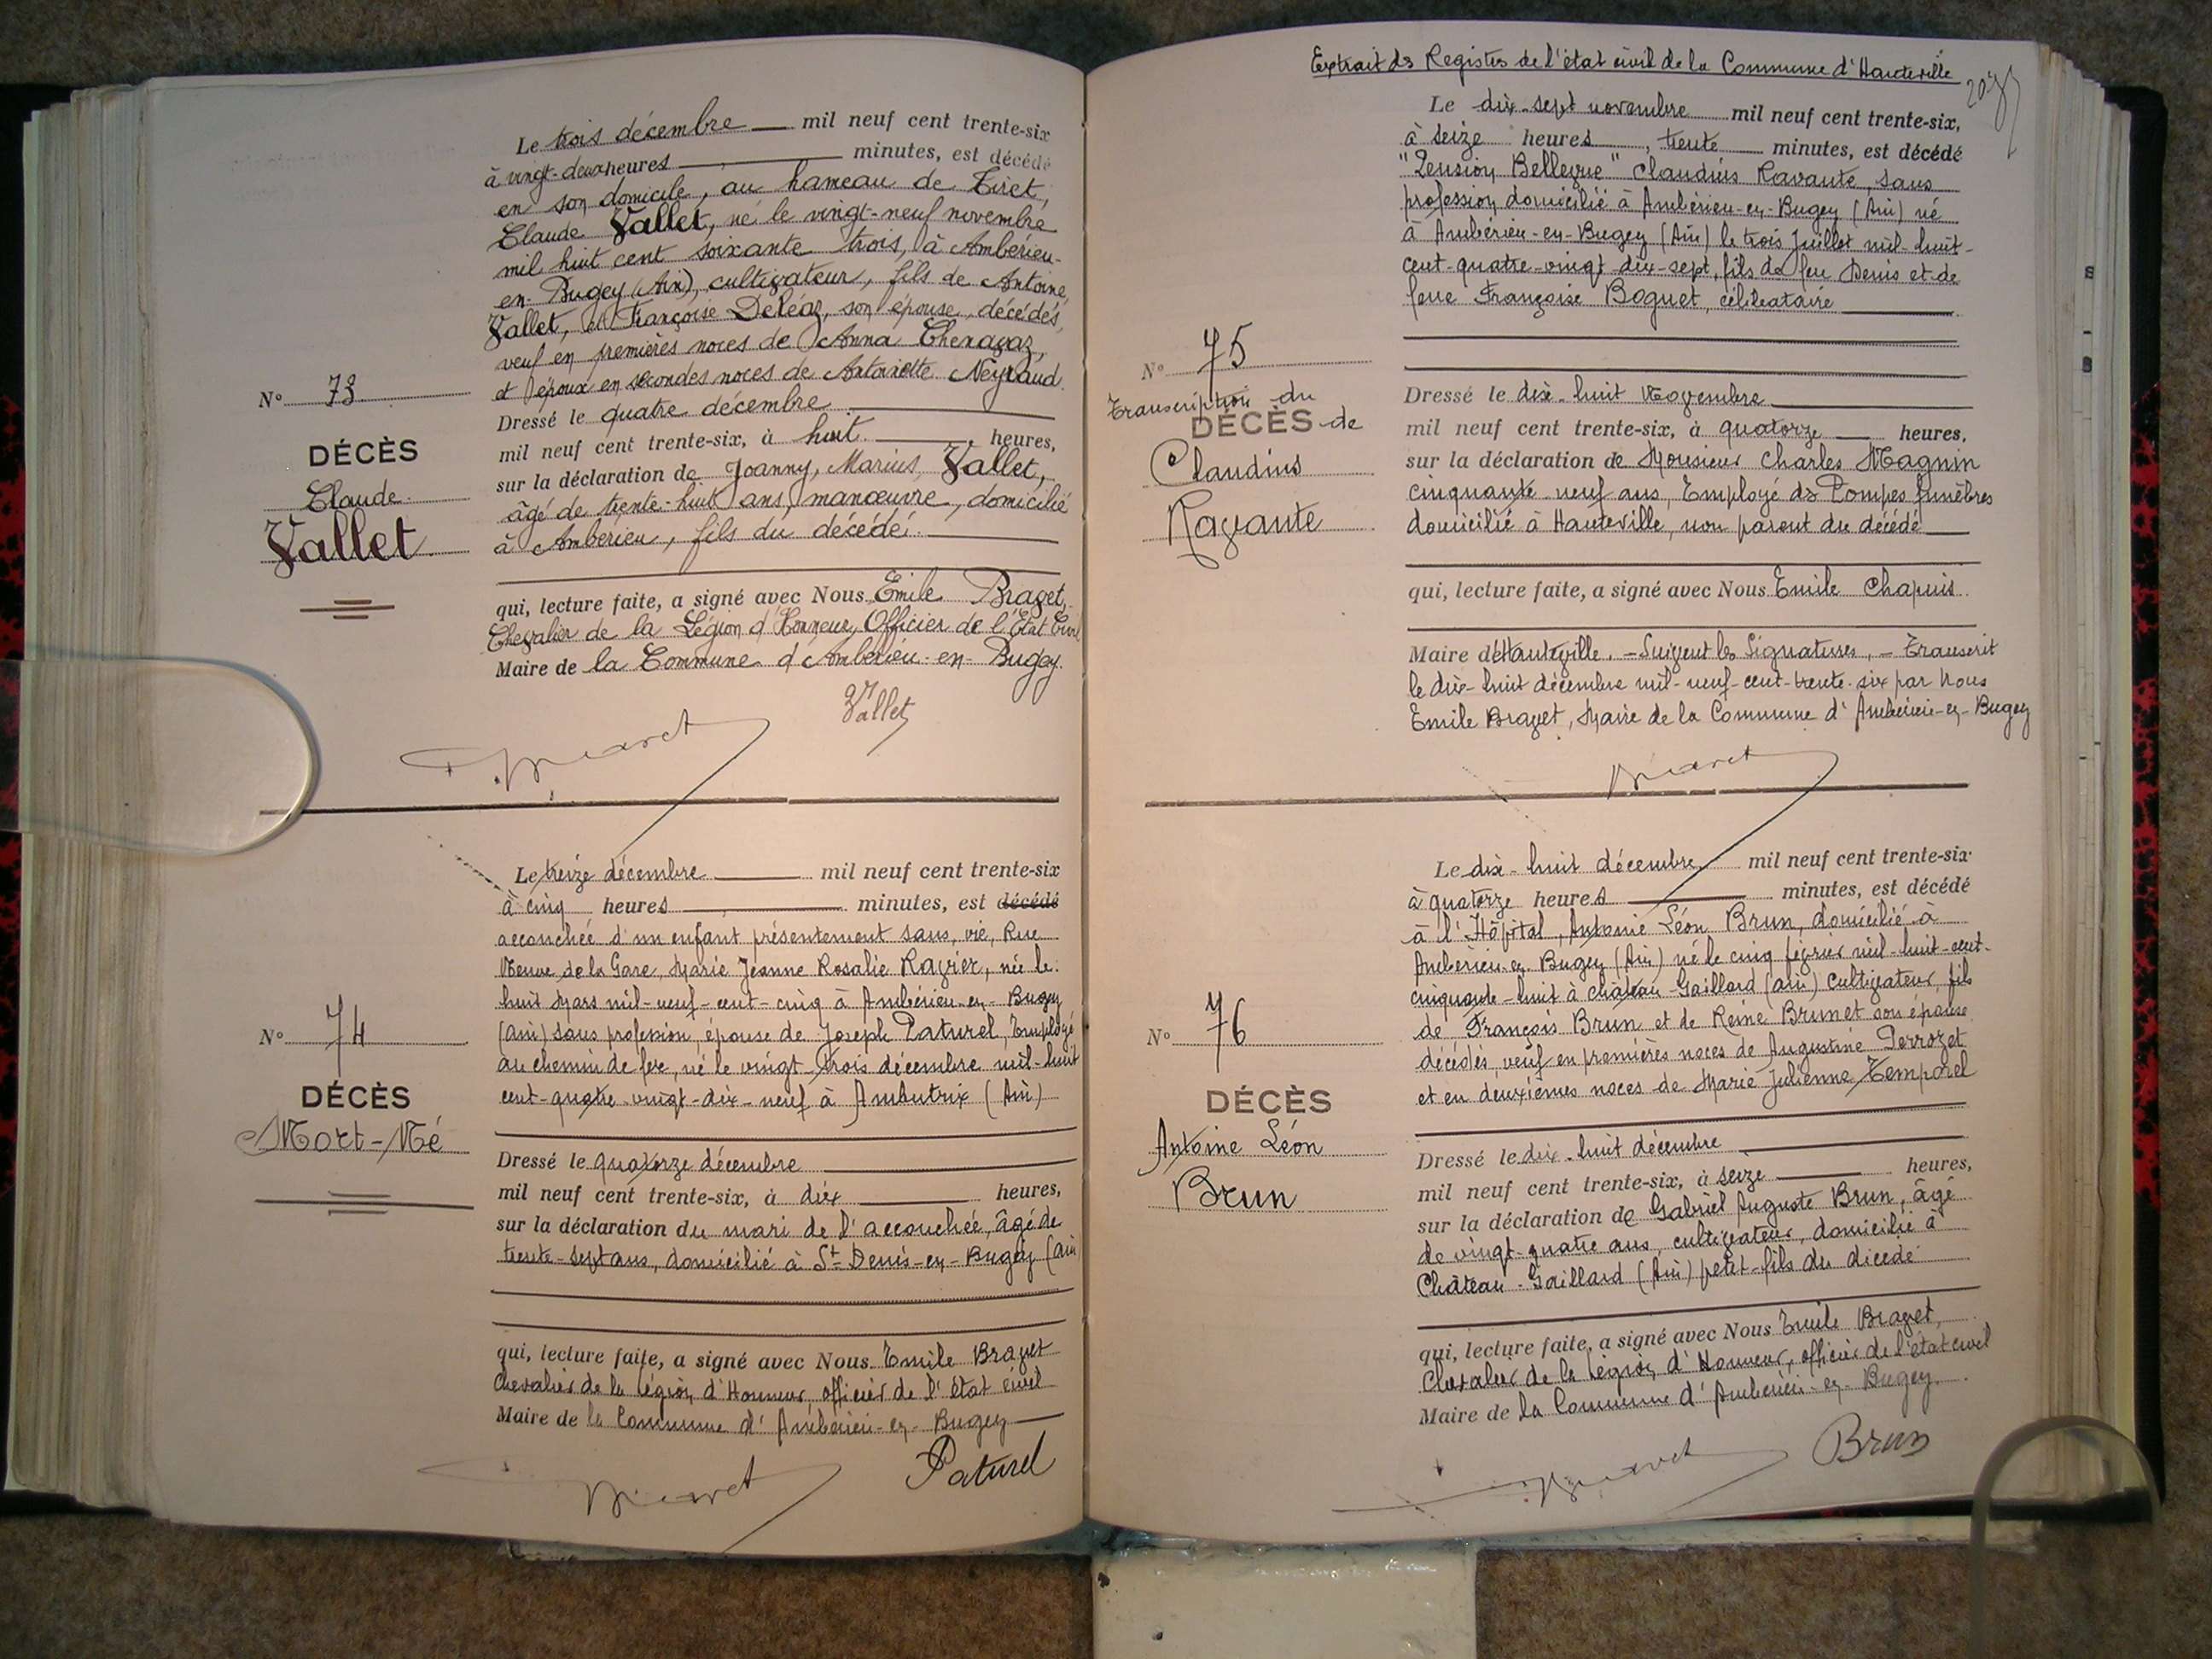 Le trois décembre mil neuf cent trente-six
à vingt-deux heures minutes, est décédé
en son domicile, au hameau de Tiret,
Claude Vallet, né le vingt-neuf novembre
mil huit cent soixante trois, à Ambérieu-
en-Bugey (Ain), cultivateur, fils de Antoine
Vallet, et Françoise Deléaz, son épouse, décédés,
veuf en premières noces de Anna Chenavaz,
et époux en secondes noces de Antoinette Neyraud.
N° 73
DÉCÈS
Claude
Vallet
Dressé le quatre décembre
mil neuf cent trente-six, à huit heures,
sur la déclaration de Joanny, Marius, Vallet,
âgé de trente-huit ans, manœuvre, domicilié
à Ambérieu, fils du décédé.
qui, lecture faite, a signé avec Nous Emile Bravet,
Chevalier de la Légion d'Honneur, Officier de l'Etat Civil
Maire de la Commune d'Ambérieu-en-Bugey.
Vallet
Bravet
Le treize décembre mil neuf cent trente-six
à cinq heures minutes, est décédé
accouchée d'un enfant présentement sans vie, Rue
Neuve de la Gare, Marie Jeanne Rosalie Ravier, née le
huit Mars mil-neuf-cent-cinq à Ambérieu-en-Bugey
(Ain) sans profession, épouse de Joseph Paturel, Employé
au chemin de fer, né le vingt-trois décembre mil-huit
cent-quatre-vingt-dix-neuf à Ambutrix (Ain)
N° 74
DÉCÈS
Mort-Né
Dressé le quatorze décembre
mil neuf cent trente-six, à dix heures,
sur la déclaration du mari de l'accouchée, âgé de
trente-sept ans, domicilié à St Denis-en-Bugey (Ain)
qui, lecture faite, a signé avec Nous Emile Bravet
Chevalier de la Légion d'Honneur, officier de l'État civil
Maire de la Commune d'Ambérieu-en-Bugey
Bravet
Paturel
Extrait des Registres de l'état civil de la Commune d'Hauteville
Le dix-sept novembre mil neuf cent trente-six,
à seize heures, trente minutes, est décédé
"Pension Bellevue" Claudius Ravante, sans
profession domicilié à Ambérieu-en-Bugey (Ain) né
à Ambérieu-en-Bugey (Ain) le trois Juillet mil-huit-
cent-quatre-vingt-dix-sept, fils de feu Denis et de
feue Françoise Boguet, célibataire
N° 75
Transcription du
DÉCÈS de
Claudius
Ravante
Dressé le dix-huit Novembre
mil neuf cent trente-six, à quatorze heures,
sur la déclaration de Monsieur Charles Magnin
cinquante-neuf ans, Employé des Pompes funèbres
domicilié à Hauteville, non parent du décédé
qui, lecture faite, a signé avec Nous Emile Chapuis
Maire d'Hauteville. - Suivent les Signatures. - Transcrit
le dix-huit décembre mil-neuf-cent-trente-six par Nous
Emile Bravet, Maire de la Commune d'Ambérieu-en-Bugey
Bravet
Le dix-huit décembre mil neuf cent trente-six
à quatorze heures minutes, est décédé
à l'Hôpital, Antoine Léon Brun, domicilié à
Ambérieu-en-Bugey (Ain) né le cinq février mil-huit-cent-
cinquante-huit à Château-Gaillard (Ain) Cultivateur, fils
de François Brun et de Reine Brunet son épouse
décédés, veuf en premières noces de Augustine Perrozet
et en deuxièmes noces de Marie Julienne Temporel
N° 76
DÉCÈS
Antoine Léon
Brun
Dressé le dix-huit décembre
mil neuf cent trente-six, à seize heures,
sur la déclaration de Gabriel Auguste Brun, âgé
de vingt-quatre ans, cultivateur, domicilié à
Château-Gaillard (Ain) petit-fils du décédé
qui, lecture faite, a signé avec Nous Emile Bravet,
Chevalier de la Légion d'Honneur, officier de l'état civil
Maire de la Commune d'Ambérieu-en-Bugey.
Bravet
Brun